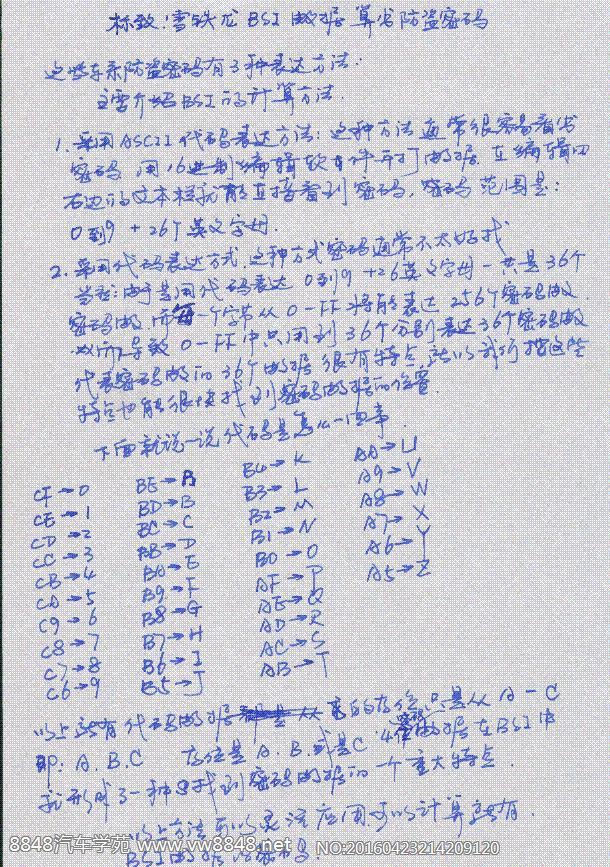 标致:雪铁龙BSI数据算出防盗密码
这些车系防盗密码有3种表达方法:
主要介绍BSI的计算方法.
1. 采用ASCII代码表达方法:这种方法通常很容易看出
密码 用16进制编辑软件打开数据. 在编辑四
右边的文本栏就能直接看到密码, 密码范围是:
0到9 + 26个英文字母.
2. 采用代码表达方式, 这种方式密码通常不太好找
由于是用代码表达 0到9 +26英文字母一共是36个
密码数, 而每一个字节从0-FF将能表达256个密码数
所以导致 0-FF中只用到36个分别表达36个密码数
代表密码数的36个数据很有特点, 所以我们按这些
特点也能很快找到密码数据的位置.
下面就说一说代码是怎么一回事.
CF→0 BE→A B4→K AA→U
CE→1 BD→B B3→L A9→V
CD→2 BC→C B2→M A8→W
CC→3 BB→D B1→N A7→X
CB→4 BA→E B0→O A6→Y
CA→5 B9→F AF→P A5→Z
C9→6 B8→G AE→Q
C8→7 B7→H AD→R
C7→8 B6→I AC→S
C6→9 B5→J AB→T
以上所有代码数据它的高位只是从A-C
即: A. B. C 高位是A.B.或是C 4位密码数据在BSI中
就形成了一种找到密码数据的一个重大特点.
以上方法可以灵活应用可以计算所有
BSI的防盗密码.
8848汽车学苑 www.vw8848.net NO:20160423214209120